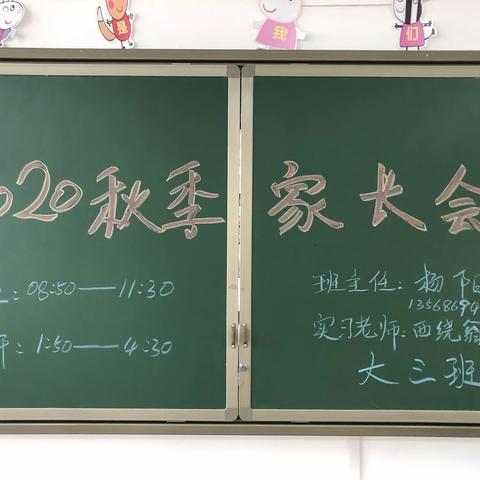 是 我 们
2020秋季 家长会
: 08:50——11:30
: 1:50——4:30
班主任: 杨阳
13568694
实习老师: 西绕翁
大三班